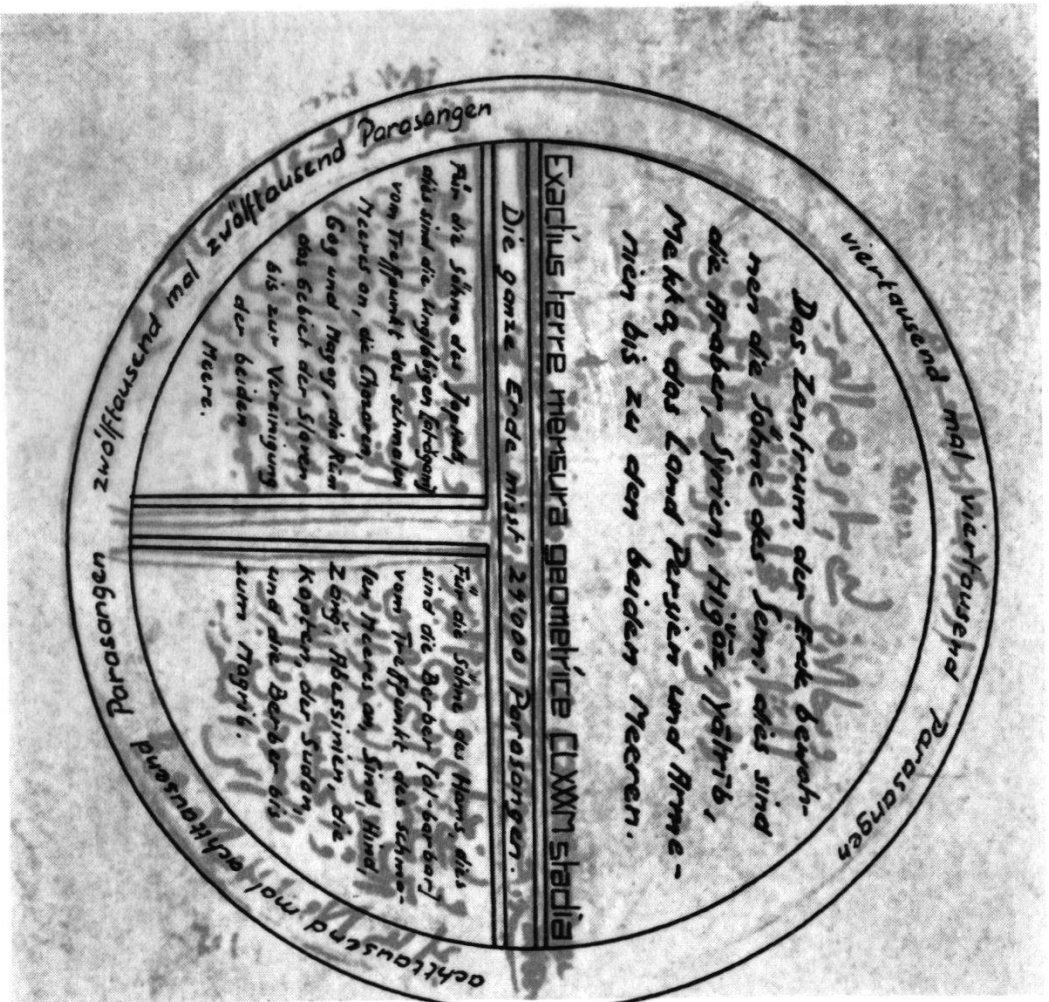 viertausend mal viertausend Parasangen
Das Zentrum der Erde bewoh-
nen die Söhne des Sem: dies sind
die Araber, Syrien, Ḥiǧāz, Yaṯrib,
Mekka, das Land Persien und Arme-
nien bis zu den beiden Meeren.
Exactius terre mensura geometrice CLXXXM stadia
Die ganze Erde misst 24'000 Parasangen.
Für die Söhne des Japhet,
dies sind die Ungläubigen
vom Treffpunkt des schmalen
Meeres an, die Chazaren,
Gog und Magog, die Rūm
das Gebiet der Slaven
bis zur Vereinigung
der beiden
Meere.
Für die Söhne des Ham, dies
sind die Berber [al-barbar]
vom Treffpunkt des schma-
len Meeres an, Sind, Hind,
Zanǧ, Abessinien, die
Kopten, der Sudan,
und die Berber bis
zum Maġrib.
zwölftausend mal zwölftausend Parasangen
achttausend mal achttausend Parasangen